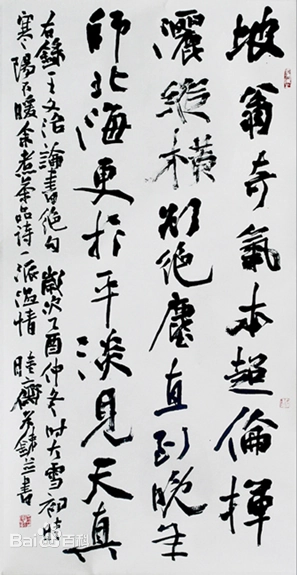 坡翁奇氣本超倫揮
灑縱橫欲絕塵直到晚年
師北海更於平淡見天真
右錄王文治論書絕句 歲次乙酉仲冬時大雪初晴
寒陽不暖余煮茶品詩一派溫情 並書
Baidu百科